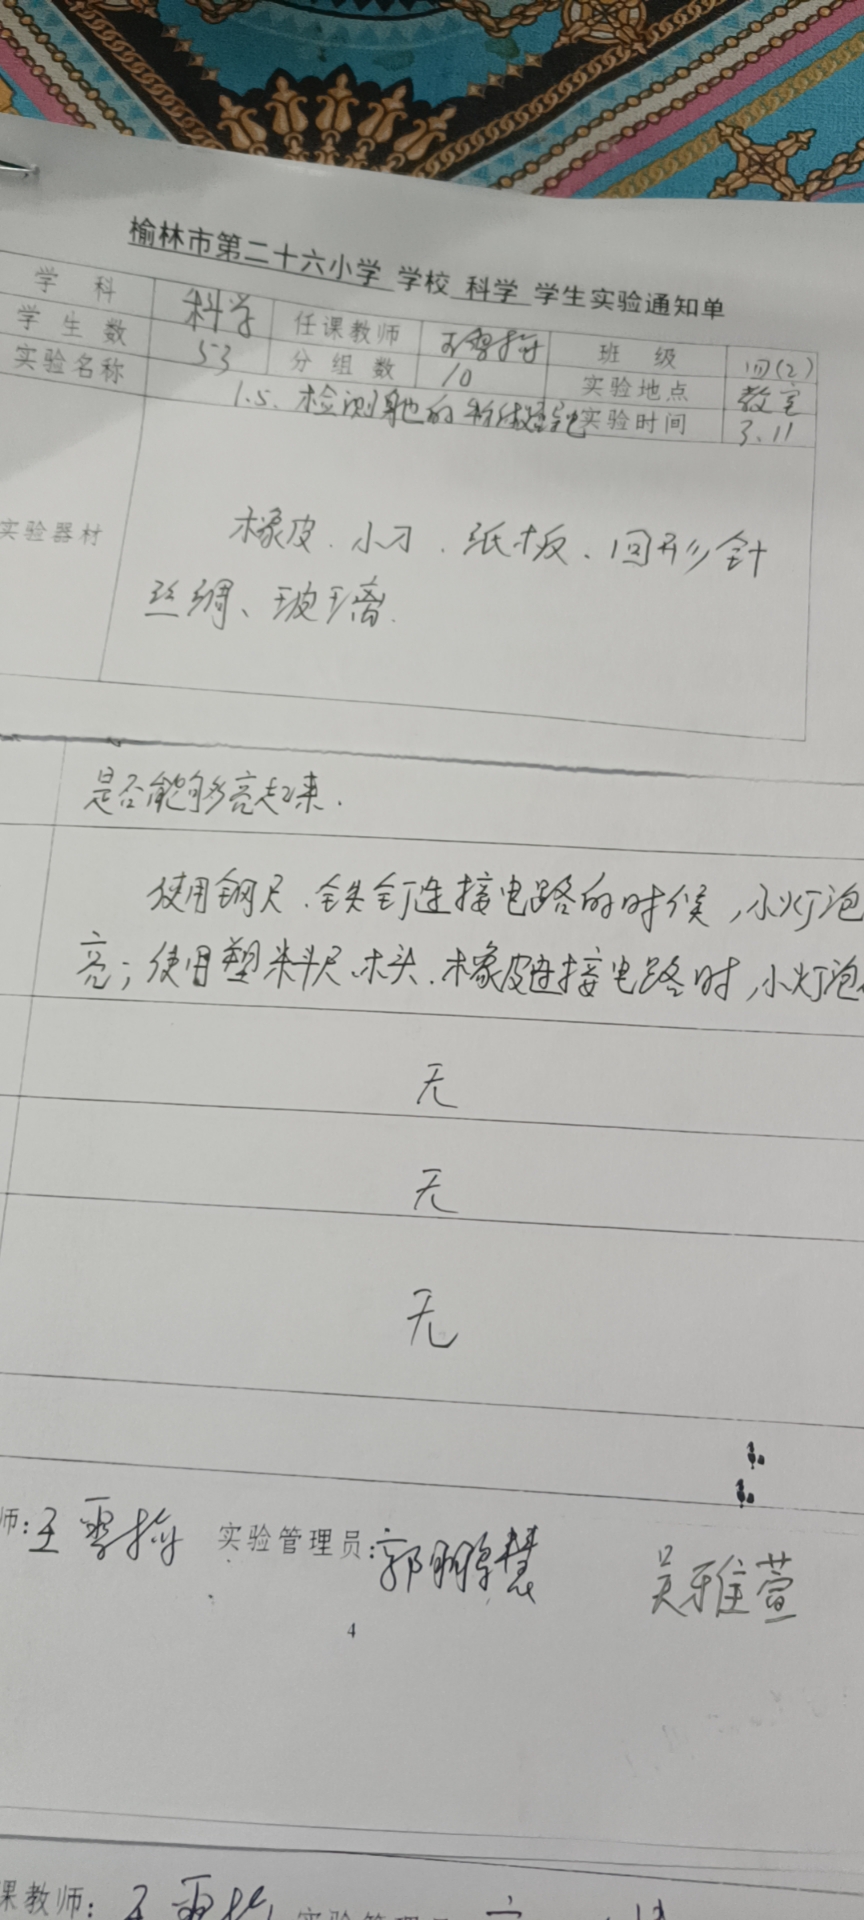 榆林市第二十六小学 学校 科学 学生实验通知单
学 科 科学 任课教师 王雪梅 班 级 四(2)
学 生 数 53 分 组 数 10 实验地点 教室
实验名称 1.5. 检测其他的物体导电 实验时间 3.11
实验器材 橡皮、小刀、纸板、回形针
丝绸、玻璃.
是否能够亮起来.
使用钢尺、铁钉连接电路的时候,小灯泡
亮;使用塑料尺、木头、橡皮连接电路时,小灯泡
无
无
无
师:王雪梅 实验管理员:郭鹏慧 吴雅萱
4
课教师: 王雪梅